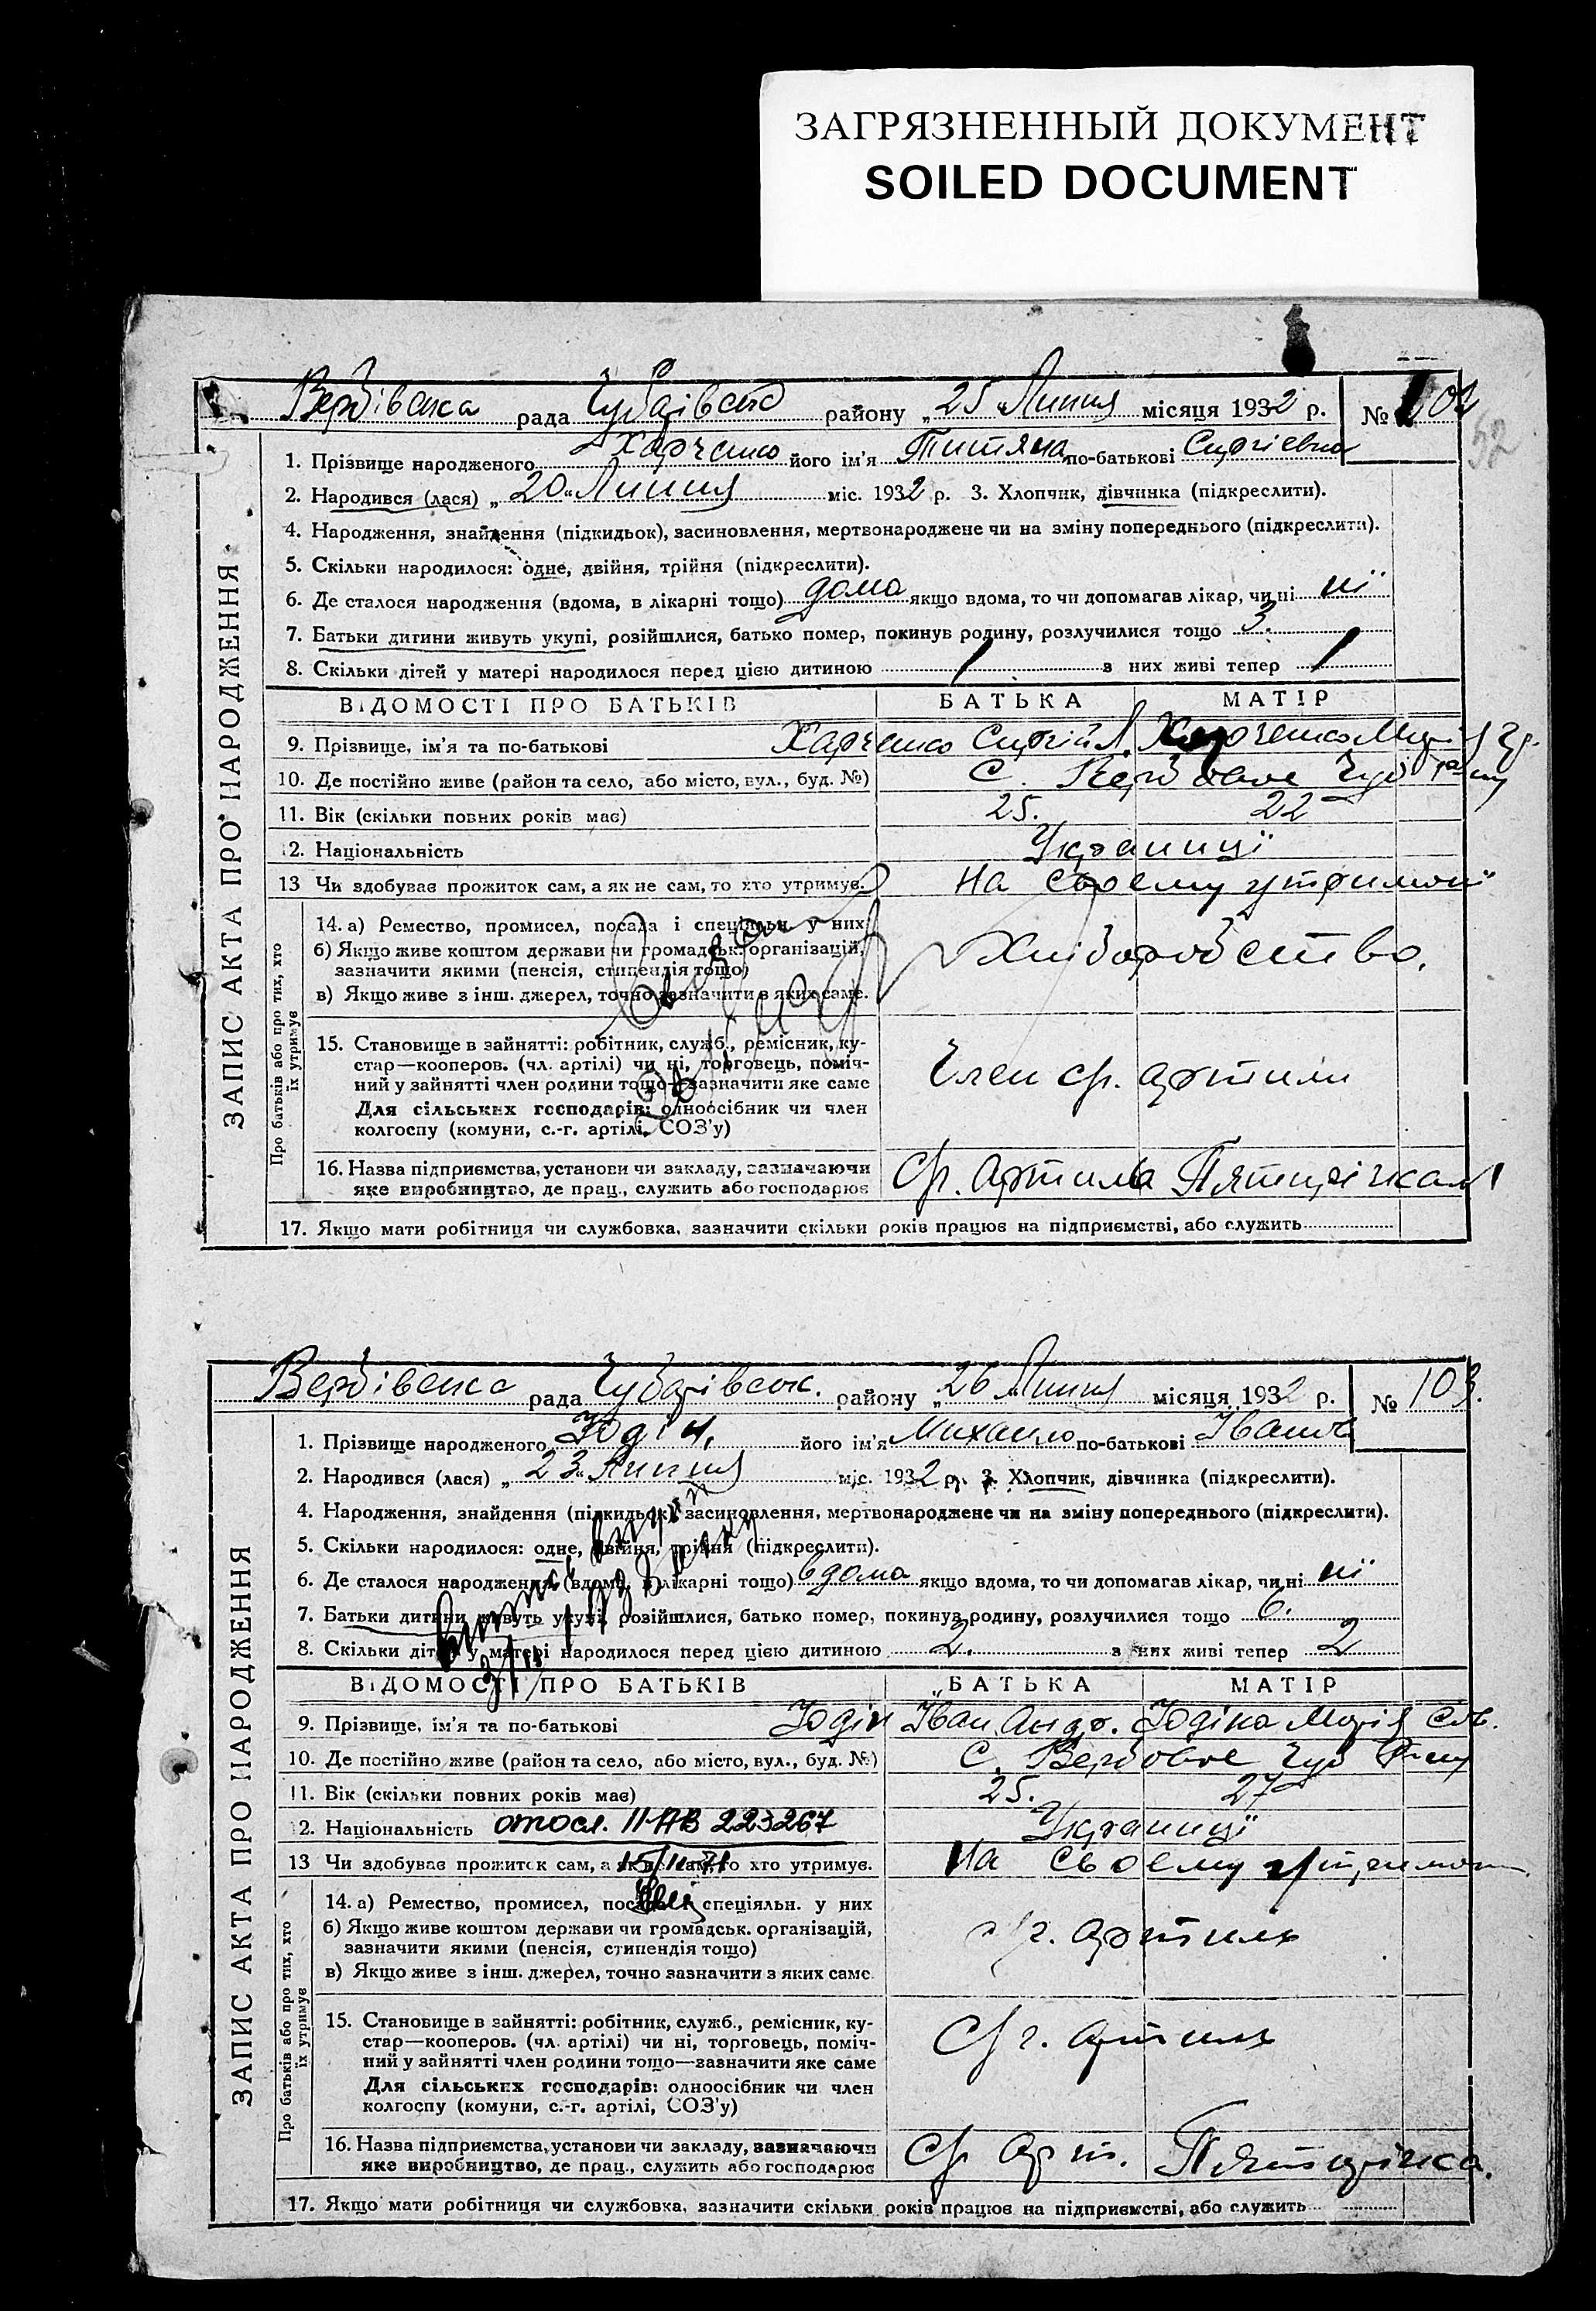 ЗАГРЯЗНЕННЫЙ ДОКУМЕНТ
SOILED DOCUMENT
52
Вербівська рада Чубарівськ району „25 Липня місяця 1932 р. № 102
ЗАПИС АКТА ПРО НАРОДЖЕННЯ
1. Прізвище народженого Харченко його ім'я Титяна по-батькові Сергієвна
2. Народився (лася) „20" Липня міс. 1932 р. 3. Хлопчик, дівчинка (підкреслити).
4. Народження, знайдення (підкидьок), засиновлення, мертвонароджене чи на зміну попереднього (підкреслити).
5. Скільки народилося: одне, двійня, трійня (підкреслити).
6. Де сталося народження (вдома, в лікарні тощо) дома якщо вдома, то чи допомагав лікар, чи ні ні
7. Батьки дитини живуть укупі, розійшлися, батько помер, покинув родину, розлучилися тощо 3.
8. Скільки дітей у матері народилося перед цією дитиною 1 з них живі тепер 1
ВІДОМОСТІ ПРО БАТЬКІВ БАТЬКА МАТІР
9. Прізвище, ім'я та по-батькові Харченко Сергій Л. Харченко Марія Гр.
10. Де постійно живе (район та село, або місто, вул., буд. №) С. Вербове Чуб
11. Вік (скільки повних років має) 25. 22
12. Національність Українці
13 Чи здобуває прожиток сам, а як не сам, то хто утримує. На своему утриманні
Про батьків або про тих, хто їх утримує
14. а) Ремество, промисел, посада і спеціяльн. у них
б) Якщо живе коштом держави чи громадськ. організацій,
зазначити якими (пенсія, стипендія тощо)
в) Якщо живе з інш. джерел, точно зазначити з яких саме.
Хліборобство.
15. Становище в зайнятті: робітник, служб., ремісник, ку-
стар—кооперов. (чл. артілі) чи ні, торговець, поміч-
ний у зайнятті член родини тощо—зазначити яке саме
Для сільських господарів: одноосібник чи член
колгоспу (комуни, с.-г. артілі, СОЗ'у)
Член ср. артили
16. Назва підприємства, установи чи закладу, зазначаючи
яке виробництво, де прац., служить або господарює
Ср. Артиль Пятирічка
17. Якщо мати робітниця чи службовка, зазначити скільки років працює на підприємстві, або служить
Вербівська рада Чубарівськ. району „26 Липня місяця 1932 р. № 103.
ЗАПИС АКТА ПРО НАРОДЖЕННЯ
1. Прізвище народженого Юдін, його ім'я Михайло по-батькові Іванов
2. Народився (лася) „23" Липня міс. 1932 р. 3. Хлопчик, дівчинка (підкреслити).
4. Народження, знайдення (підкидьок) засиновлення, мертвонароджене чи на зміну попереднього (підкреслити).
5. Скільки народилося: одне, двійня, трійня (підкреслити).
6. Де сталося народження (вдома, в лікарні тощо) вдома якщо вдома, то чи допомагав лікар, чи ні ні
7. Батьки дитини живуть укупі, розійшлися, батько помер, покинув родину, розлучилися тощо 6.
8. Скільки дітей у матері народилося перед цією дитиною 2. з них живі тепер 2
ВІДОМОСТІ ПРО БАТЬКІВ БАТЬКА МАТІР
9. Прізвище, ім'я та по-батькові Юдін Іван Андр. Юдіна Марія
10. Де постійно живе (район та село, або місто, вул., буд. №) С. Вербове Чуб
11. Вік (скільки повних років має) 25. 27
12. Національність отосл. II-АВ 223267 Українці
13 Чи здобуває прожиток сам, а як не сам, то хто утримує. На своему утриман
Про батьків або про тих, хто їх утримує
14. а) Ремество, промисел, посада і спеціяльн. у них
б) Якщо живе коштом держави чи громадськ. організацій,
зазначити якими (пенсія, стипендія тощо)
в) Якщо живе з інш. джерел, точно зазначити з яких саме.
с/г. артиль
15. Становище в зайнятті: робітник, служб., ремісник, ку-
стар—кооперов. (чл. артілі) чи ні, торговець, поміч-
ний у зайнятті член родини тощо—зазначити яке саме
Для сільських господарів: одноосібник чи член
колгоспу (комуни, с.-г. артілі, СОЗ'у)
С/г. артиль
16. Назва підприємства, установи чи закладу, зазначаючи
яке виробництво, де прац., служить або господарює
Ср Арт. Пятирічка.
17. Якщо мати робітниця чи службовка, зазначити скільки років працює на підприємстві, або служить